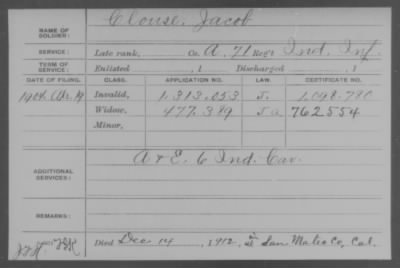 NAME OF SOLDIER: Clouse, Jacob
SERVICE: Late rank, Co. A, 71 Reg't Ind. Inf.
TERM OF SERVICE: Enlisted , 1 Discharged , 1
DATE OF FILING. CLASS. APPLICATION NO. LAW. CERTIFICATE NO.
1904, Apr. 19 Invalid, 1,313,053 J. 1,098,780
Widow, 477,389 762554
Minor,
ADDITIONAL SERVICES: A & E. 6 Ind. Cav.
REMARKS:
Died Dec 14, 1912, at San Mateo Co, Cal.